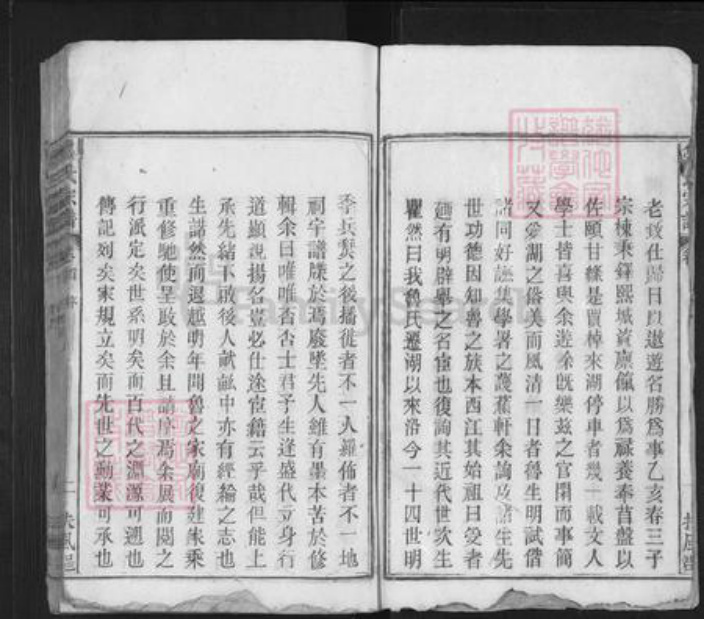 老致仕歸日以遨遊名勝爲事乙亥春三子
宗棟秉鐸熙城資廩餼以爲祿養奉苜盤以
佐頤甘絛是買棹來湖停車者幾一載文人
學士皆喜與余遊余旣樂茲之官閒而事簡
又愛湖之俗美而風清一日者魯生明試偕
諸同好讌集學署之蔬蕉軒余詢及諸生先
世功德因知魯之族本西江其始祖曰受者
廼有明辟舉之名宦也復詢其近代世次生
瞿然曰我魯氏遷湖以來洛今一十四世明
季兵燹之後播徙者不一人羅佈者不一地
祠宇譜牒於焉廢墜先人雖有墨本苦於修
輯余曰唯唯否否士君子生逢盛代立身行
道顯親揚名豈必仕途宦籍云乎哉但能上
承先緒下啟後人猷畝中亦有經綸之志也
生諾然而退越明年聞魯之家廟復建朱乘
重修馳使呈政於余且請序焉余展而閱之
行派定矣世系明矣而百代之淵源可遡也
傳記列矣家規立矣而先世之勳業可承也
氏宗譜
二
扶風邑
FamilySearch